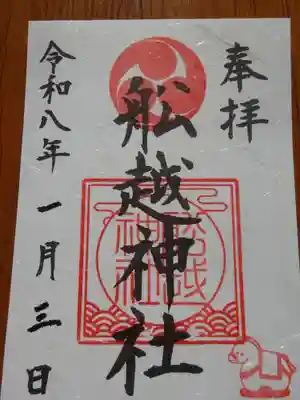 奉拝
舩越神社
舩越
神社
令和八年 一月三日